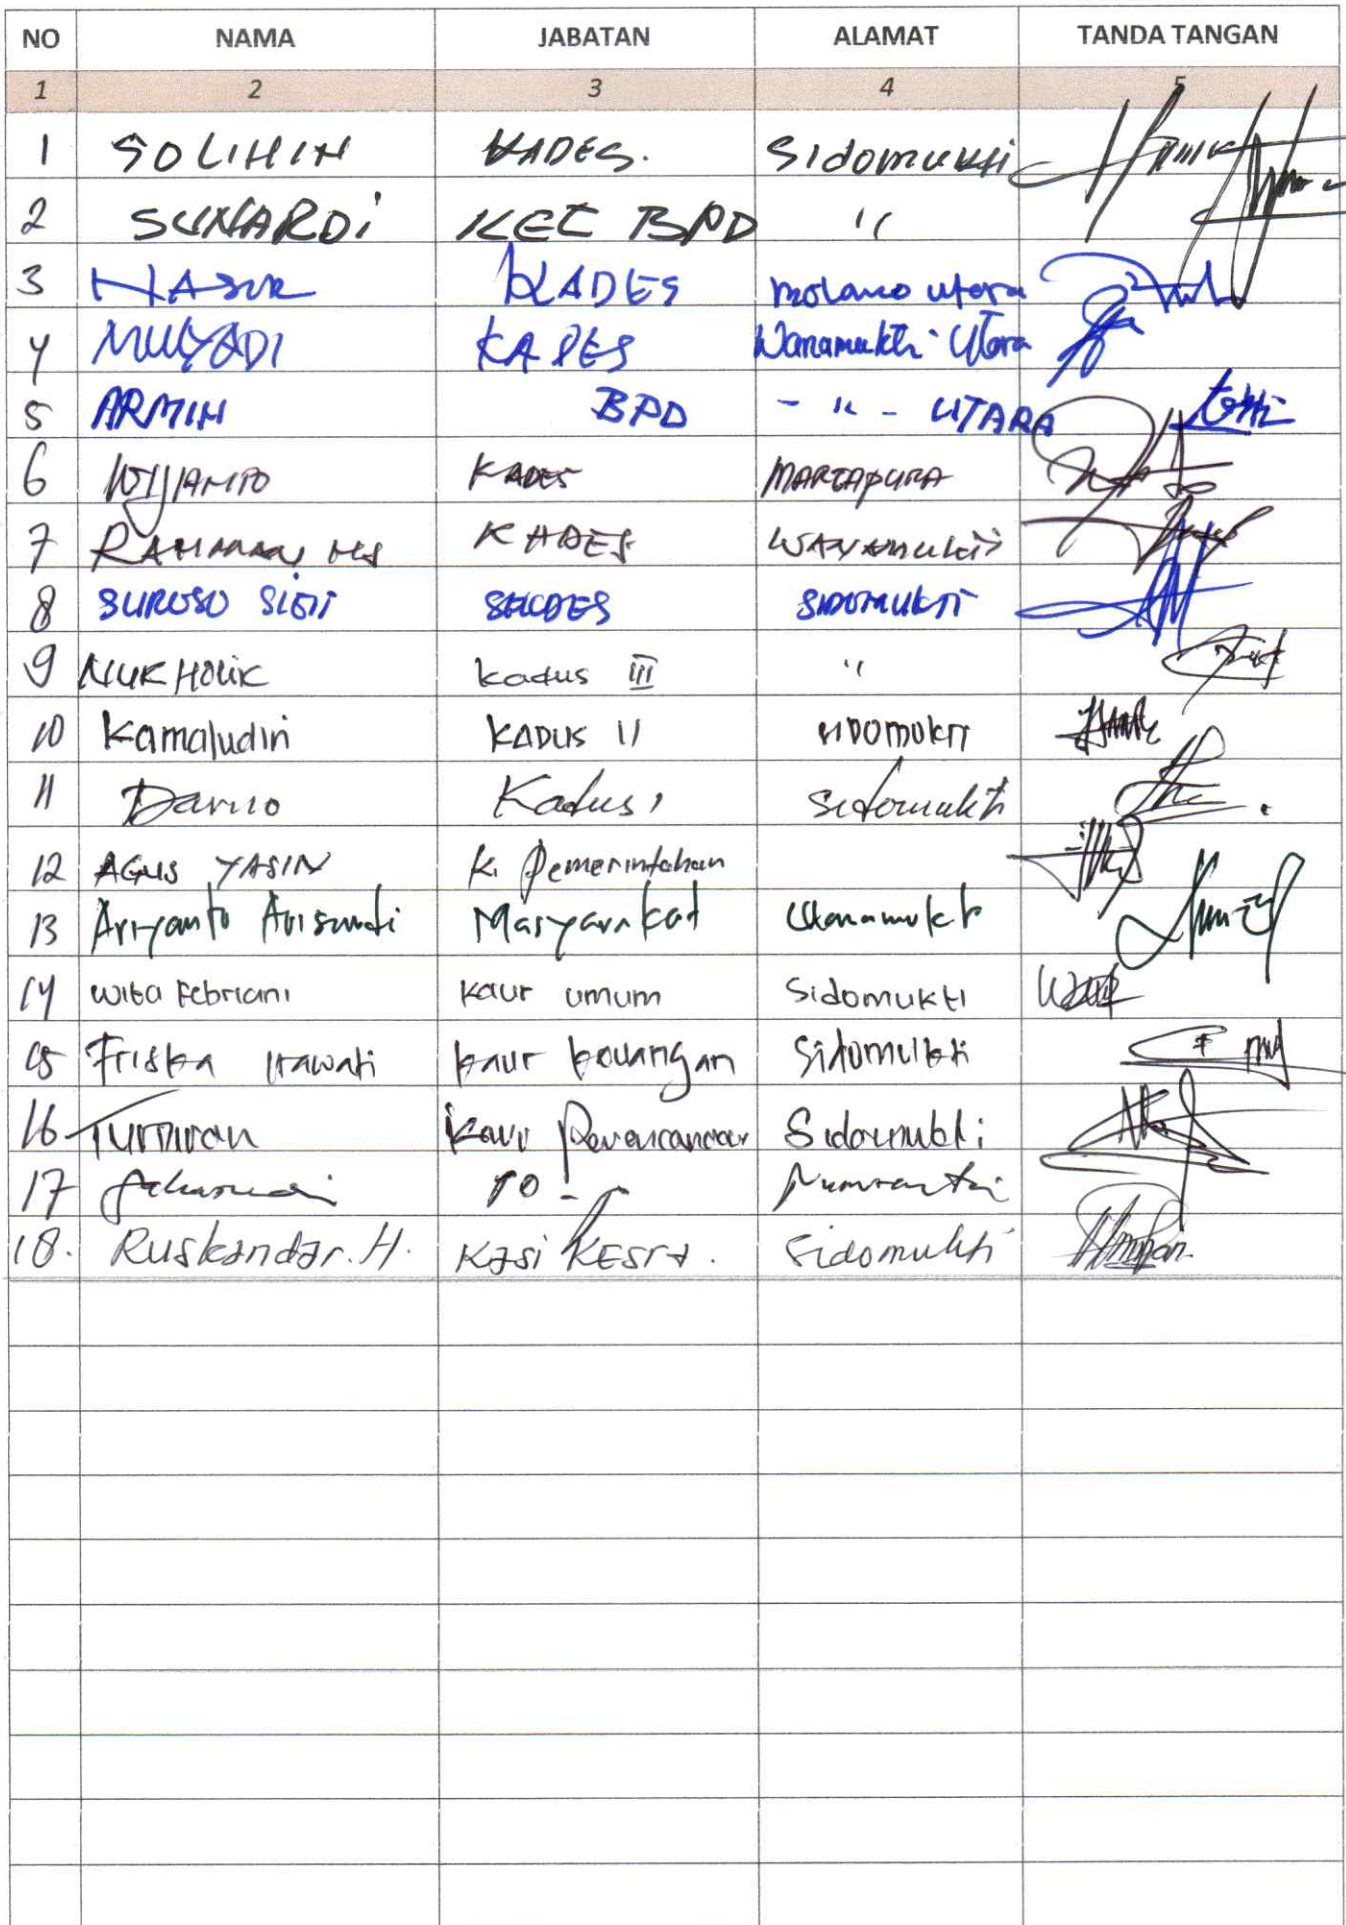 NO NAMA JABATAN ALAMAT TANDA TANGAN
1 2 3 4 5
1 SOLIHIN KADES. Sidomukti
2 SUNARDi KET BPD "
3 NASIR KADES molamo utara
4 MULYADI KADES Wanamukti Utara
5 ARMIN BPD - " - UTARA
6 WIJIANTO KADES MARTAPURA
7 RAHMAN KADES WANAMUKTI
8 SUROSO SIGIT SEKDES SIDOMUKTI
9 NUKHOLIK kadus III "
10 Kamaludin KADUS II SIDOMUKTI
11 Darno Kadus 1 sidomukti
12 AGUS YASIN K. Pemerintahan
13 Ariyanto Arisandi Masyarakat Wanamukti
14 wiba Febriani kaur umum Sidomukti
15 Friska irawati kaur keuangan Sidomukti
16 Turmiran Kaur Perencanaan Sidomukti
17
18. Ruskandar. H. Kasi KESRA. Sidomukti